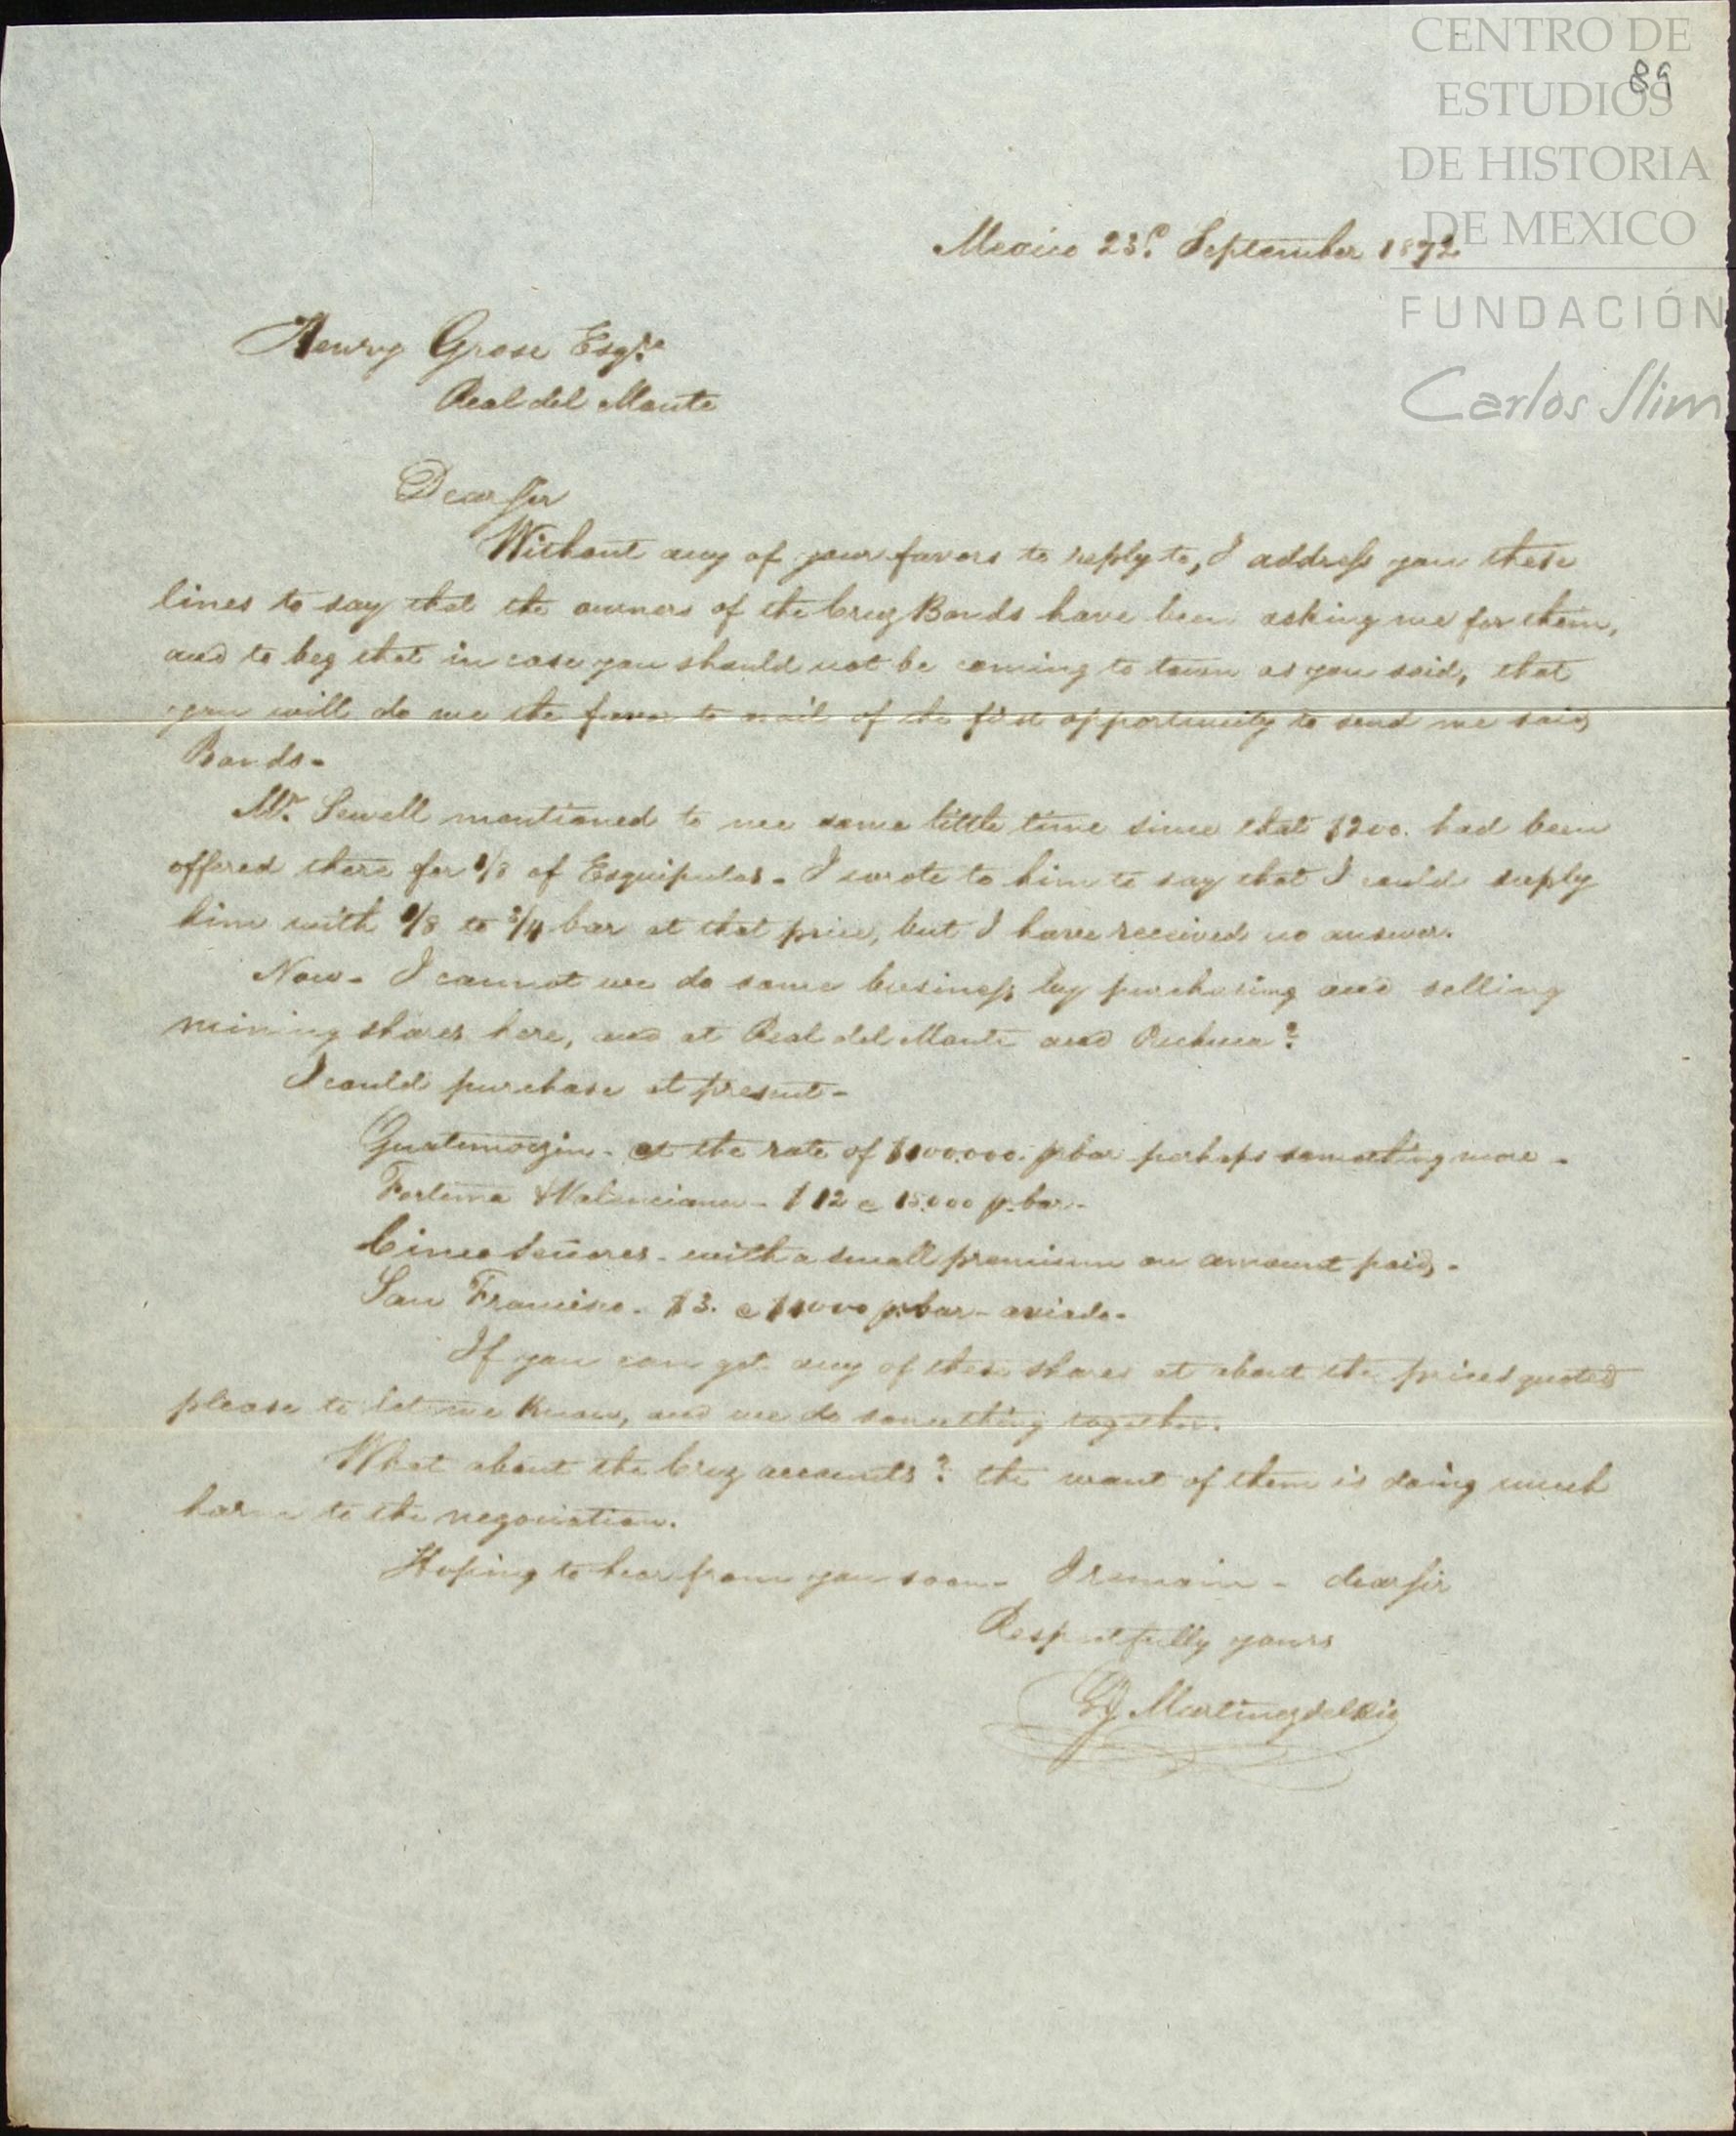 CENTRO DE
ESTUDIOS
DE HISTORIA
DE MEXICO
FUNDACIÓN
Carlos Slim
89
Mexico 23d. September 1872
Henry Grose Esqre.
Real del Monte
Dear Sir
Without any of your favors to reply to, I address you these
lines to say that the owners of the Cruz Bonds have been asking me for them,
and to beg that in case you should not be coming to town as you said, that
you will do me the favor to avail of the first opportunity to send me said
Bonds.-
Mr. Sewell mentioned to me some little time since that $200. had been
offered there for 1/8 of Esquipulas.- I wrote to him to say that I could supply
him with 1/8 to 3/4 bar at that price, but I have received no answer.
Now- I cannot we do some business by purchasing and selling
mining shares here, and at Real del Monte and Pachuca?
I could purchase at present-
Guatimoczin- at the rate of $100.000. p bar perhaps something more-
Fortuna & Valenciana- $12 a 15.000 p. bar.-
Cinco Señores- with a small premium on amount paid.-
San Francisco- $3. a $4000 p. bar- aviada.-
If you can get any of these shares at about the prices quoted
please to let me know, and we do something together.
What about the Cruz accounts? the want of them is doing much
harm to the negociation.
Hoping to hear from you soon- I remain- dear sir
Respectfully yours
Martinez del Rio